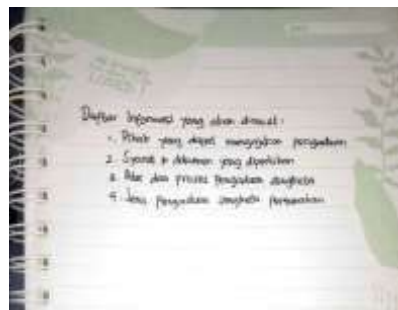 Daftar Informasi yang akan dimuat :
1. Pihak yang dapat mengajukan pengaduan
2. Syarat & dokumen yang diperlukan
3. Alur dan proses Pengaduan sengketa
4. Jenis Pengaduan sengketa Pertanahan